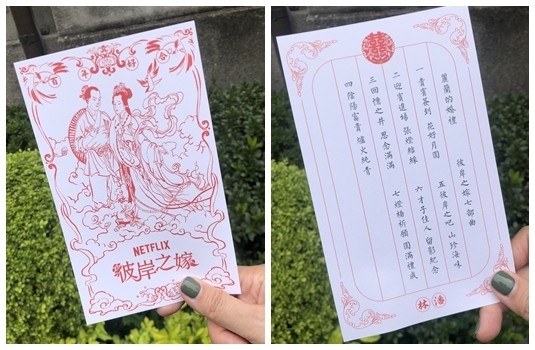 百年好合
NETFLIX
彼岸之嫁
囍
麗蘭的婚禮
彼岸之嫁七部曲
一 貴賓簽到 花好月圓
二 迎賓進場 張燈結綵
三 回禮之井 思念滿滿
四 陰陽富貴 爐火純青
五 彼岸之吧 山珍海味
六 才子佳人 留影紀念
七 燈橋祈願 圓滿禮成
林 潘